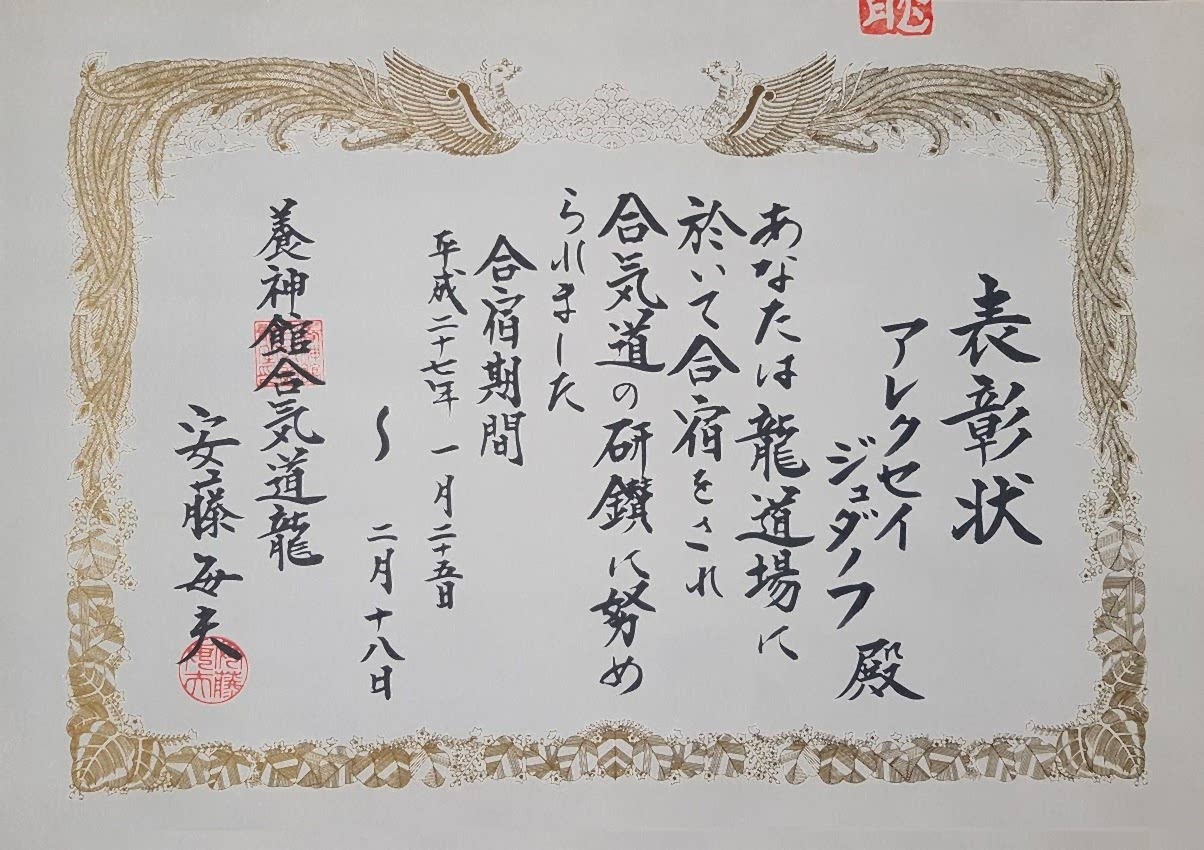 表彰状
アレクセイ
ジュダノフ 殿
あなたは龍道場に
於いて合宿をされ
合気道の研鑽に努め
られました
合宿期間
平成二十七年 一月二十五日
~ 二月十八日
養神館合気道龍
安藤毎夫